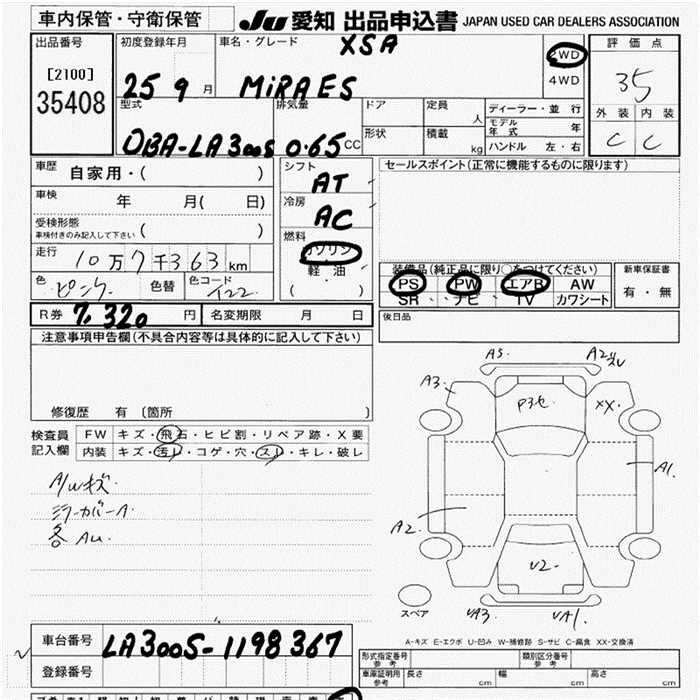 車内保管・守衛保管
JU 愛知 出品申込書 JAPAN USED CAR DEALERS ASSOCIATION
出品番号
[2100]
35408
初度登録年月
25 9 月
車名・グレード
XSA
MiRA ES
2WD
4WD
評価点
35
外装 内装
C C
型式
DBA-LA300S
排気量
0.65 CC
ドア
形状
定員 人
積載 kg
ディーラー・並行
モデル年式 年
ハンドル 左・右
車歴 自家用・( )
車検 年 月( 日)
受検形態
車検付きのみ記入して下さい ( )
走行 10万7千363 km
色 ピンク 色替 色コード
R券 7,320 円 名変期限 月 日
シフト AT
冷房 AC
燃料
ガソリン
軽油
( )
セールスポイント(正常に機能するものに限ります)
装備品(純正品に限り○をつけてください)
PS PW エアB AW
SR ナビ TV カワシート
新車保証書
有・無
後日品
注意事項申告欄(不具合内容等は具体的に記入して下さい)
修復歴 有 〔箇所 〕
検査員記入欄
FW キズ・飛石・ヒビ割・リペア跡・X要
内装 キズ・汚レ・コゲ・穴・スレ・キレ・破レ
A/wキズ.
ミラーカバーA
各 Au.
A3. A2
A3. XX.
A1.
A2.
U2-
UA3 UA1.
スペア
A-キズ E-エクボ U-凹み W-補修跡 S-サビ C-腐食 XX-交換済
車台番号 LA300S-1198367
登録番号
型式指定番号 参考
類別区分番号 参考
車庫証明用 参考 長さ cm 幅 cm 高さ cm